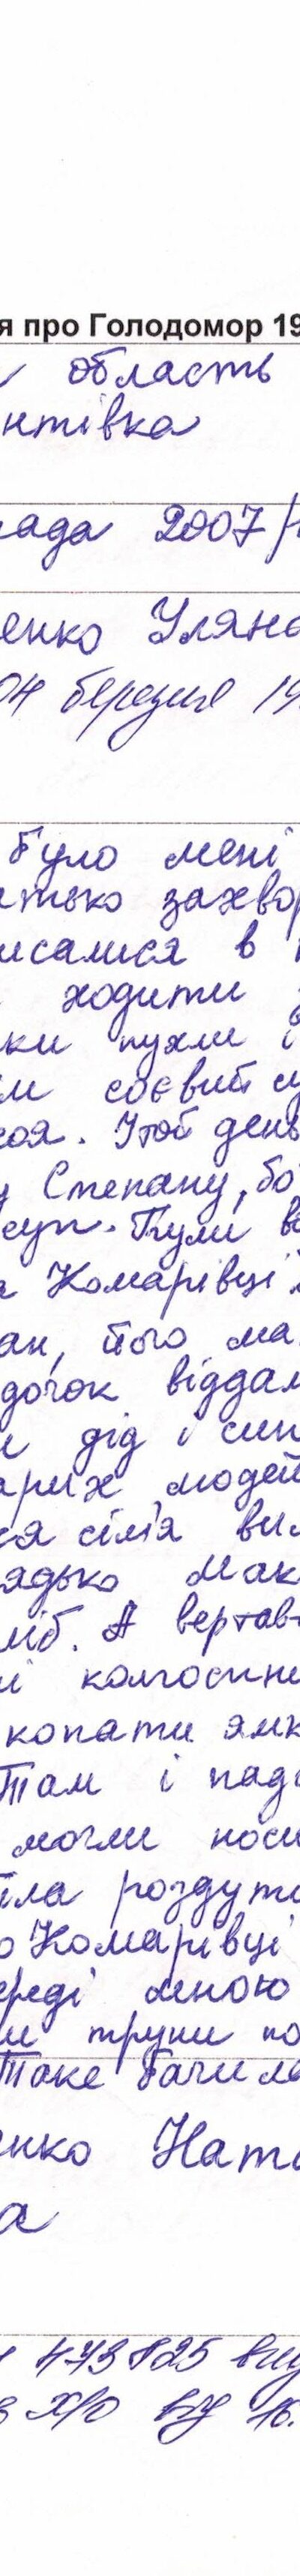 я про Голодомор 19
область
нтівка
ада 2007/
енко Уляна
04 березня 19
було мені
атько захвор
исалися в
ходити
ки пухли і
їм соєвий су
соя. Цей день
у Степану, бо
суп. Були
а Комарівці
ан, його ма
дочок віддал
и дід і син
арих людей
ся сім'я вим
ядько Мак
ліб. А вертав
і колгоспни
копати ямк
Там і пада
могли носи
іла роздути
о Комарівці
ереді мною
и трупи по
Таке бачила
енко Ната
а
473825 вид
ХРВ 16.